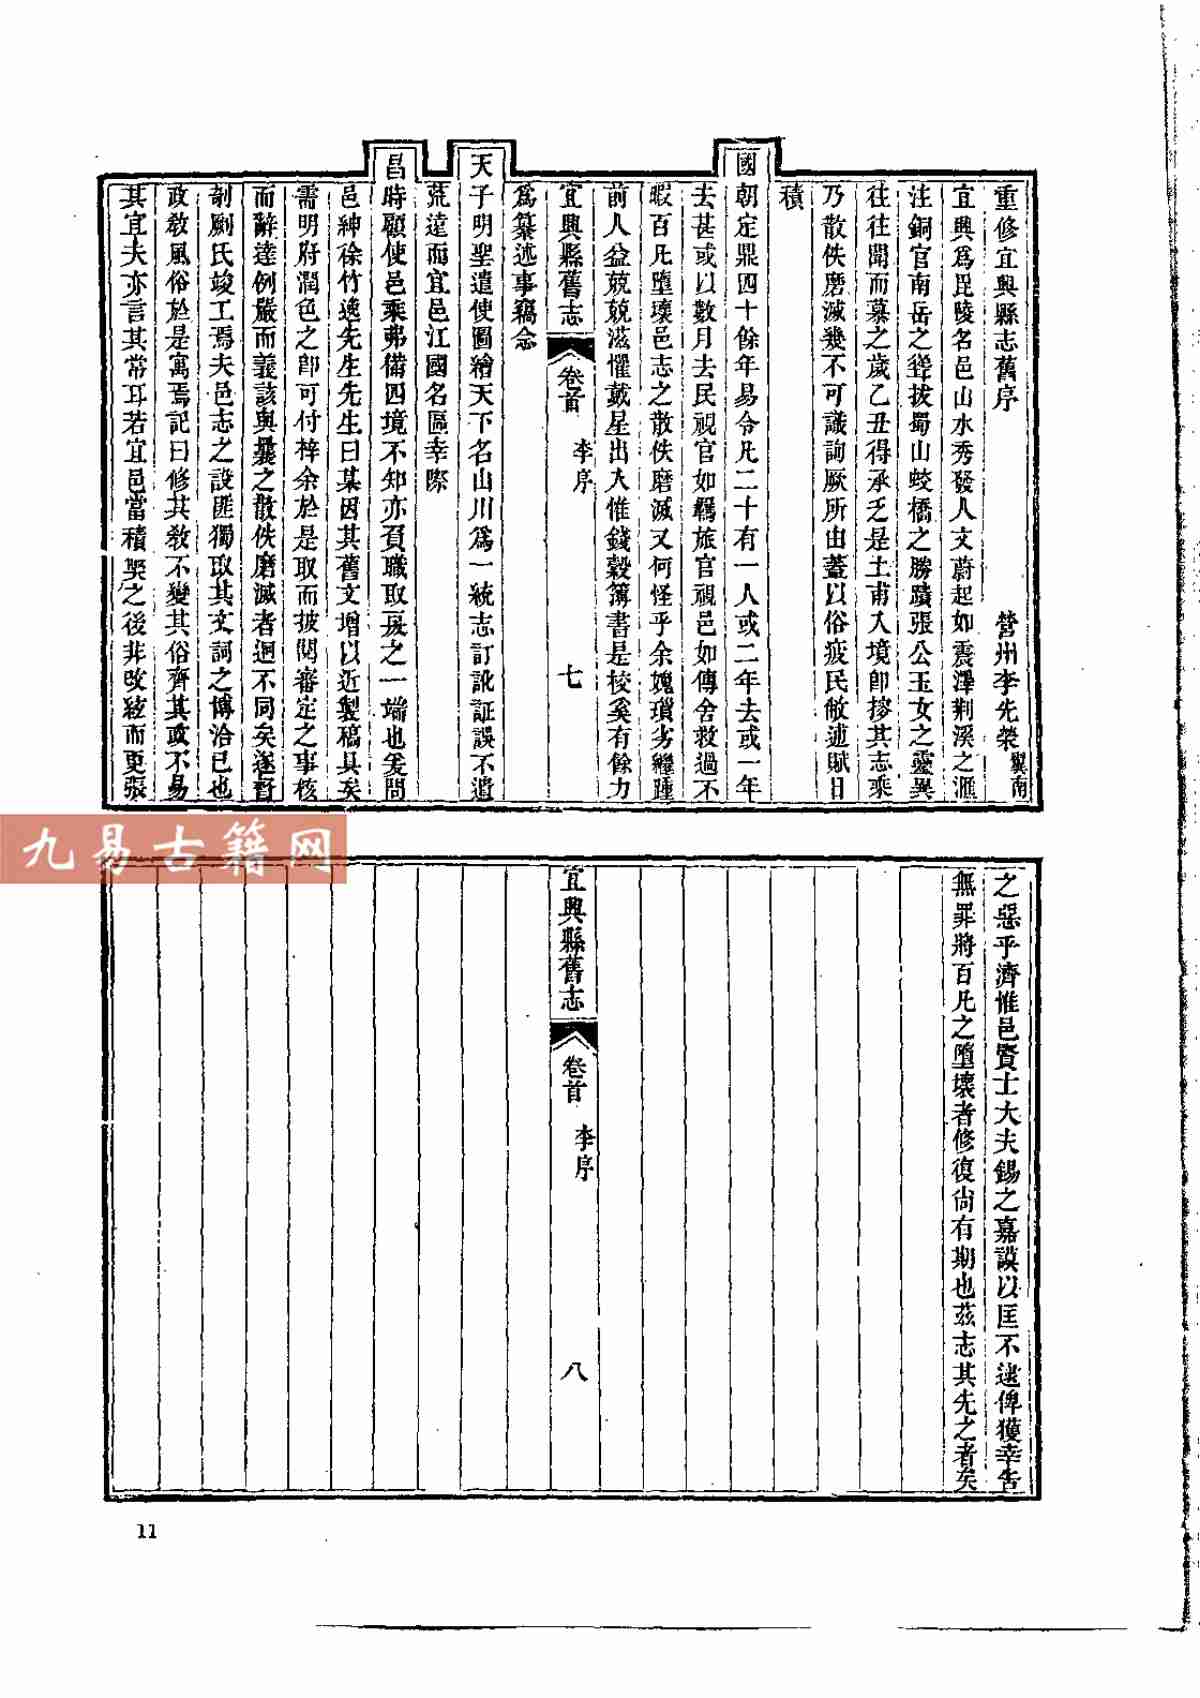 重修宜興縣志舊序
營州李先榮翼南
宜興爲毘陵名邑山水秀發人文蔚起如震澤荆溪之滙
注銅官南岳之聳拔蜀山蛟橋之勝蹟張公玉女之靈異
往往聞而慕之歲乙丑得承乏是土甫入境卽搜其志乘
乃散佚磨滅幾不可識詢厥所由蓋以俗疲民敝逋賦日
積
國朝定鼎四十餘年易令凡二十有一人或二年去或一年
去甚或以數月去民視官如羇旅官視邑如傳舍救過不
暇百凡墮壞邑志之散佚磨滅又何怪乎余媿瑣劣繼踵
前人益兢兢滋懼戴星出入惟錢穀簿書是校奚有餘力
宜興縣舊志
卷首
李序
七
爲纂述事竊念
天子明聖遣使圖繪天下名山川爲一統志訂訛証誤不遺
荒遠而宜邑江國名區幸際
昌時顧使邑乘弗備四境不知亦有職取戾之一端也爰問
邑紳徐竹逸先生先生曰某因其舊文增以近製稿具矣
需明府潤色之卽可付梓余於是取而披閱審定之事核
而辭達例嚴而義該與曩之散佚磨滅者迥不同矣遂督
剞劂氏竣工焉夫邑志之設匪獨取其文詞之博洽已也
政敎風俗於是寓焉記曰修其敎不變其俗齊其政不易
其宜夫亦言其常耳若宜邑當積弊之後非改絃而更張
之惡乎濟惟邑賢士大夫錫之嘉謨以匡不逮俾獲幸告
無罪將百凡之墮壞者修復尙有期也茲志其先之者矣
宜興縣舊志
卷首
李序
八
11
九易古籍网